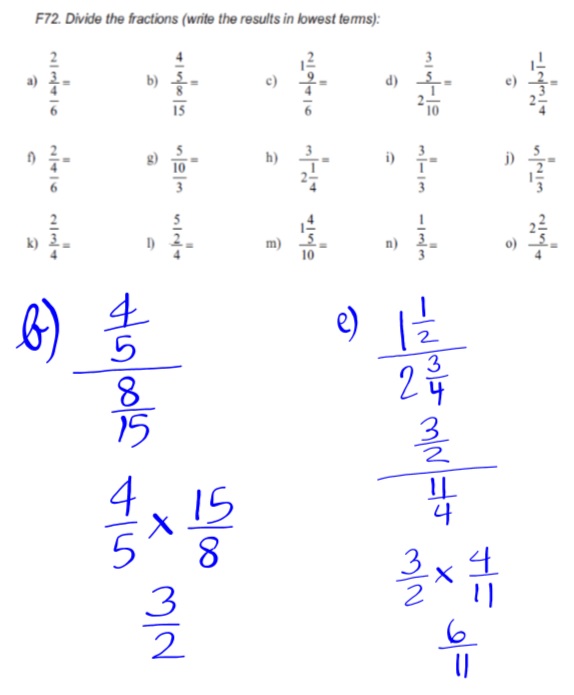 F72. Divide the fractions (write the results in lowest terms):
a) (2/3)/(4/6) = b) (4/5)/(8/15) = c) (1 2/9)/(4/6) = d) (3/5)/(2 1/10) = e) (1 1/2)/(2 3/4) =
f) 2/(4/6) = g) 5/(10/3) = h) 3/(2 1/4) = i) 3/(1/3) = j) 5/(1 2/3) =
k) (2/3)/4 = l) (5/2)/4 = m) (1 4/5)/10 = n) (1/3)/3 = o) (2 2/5)/4 =
b) (4/5)/(8/15)
4/5 × 15/8
3/2
e) (1 1/2)/(2 3/4)
(3/2)/(11/4)
3/2 × 4/11
6/11